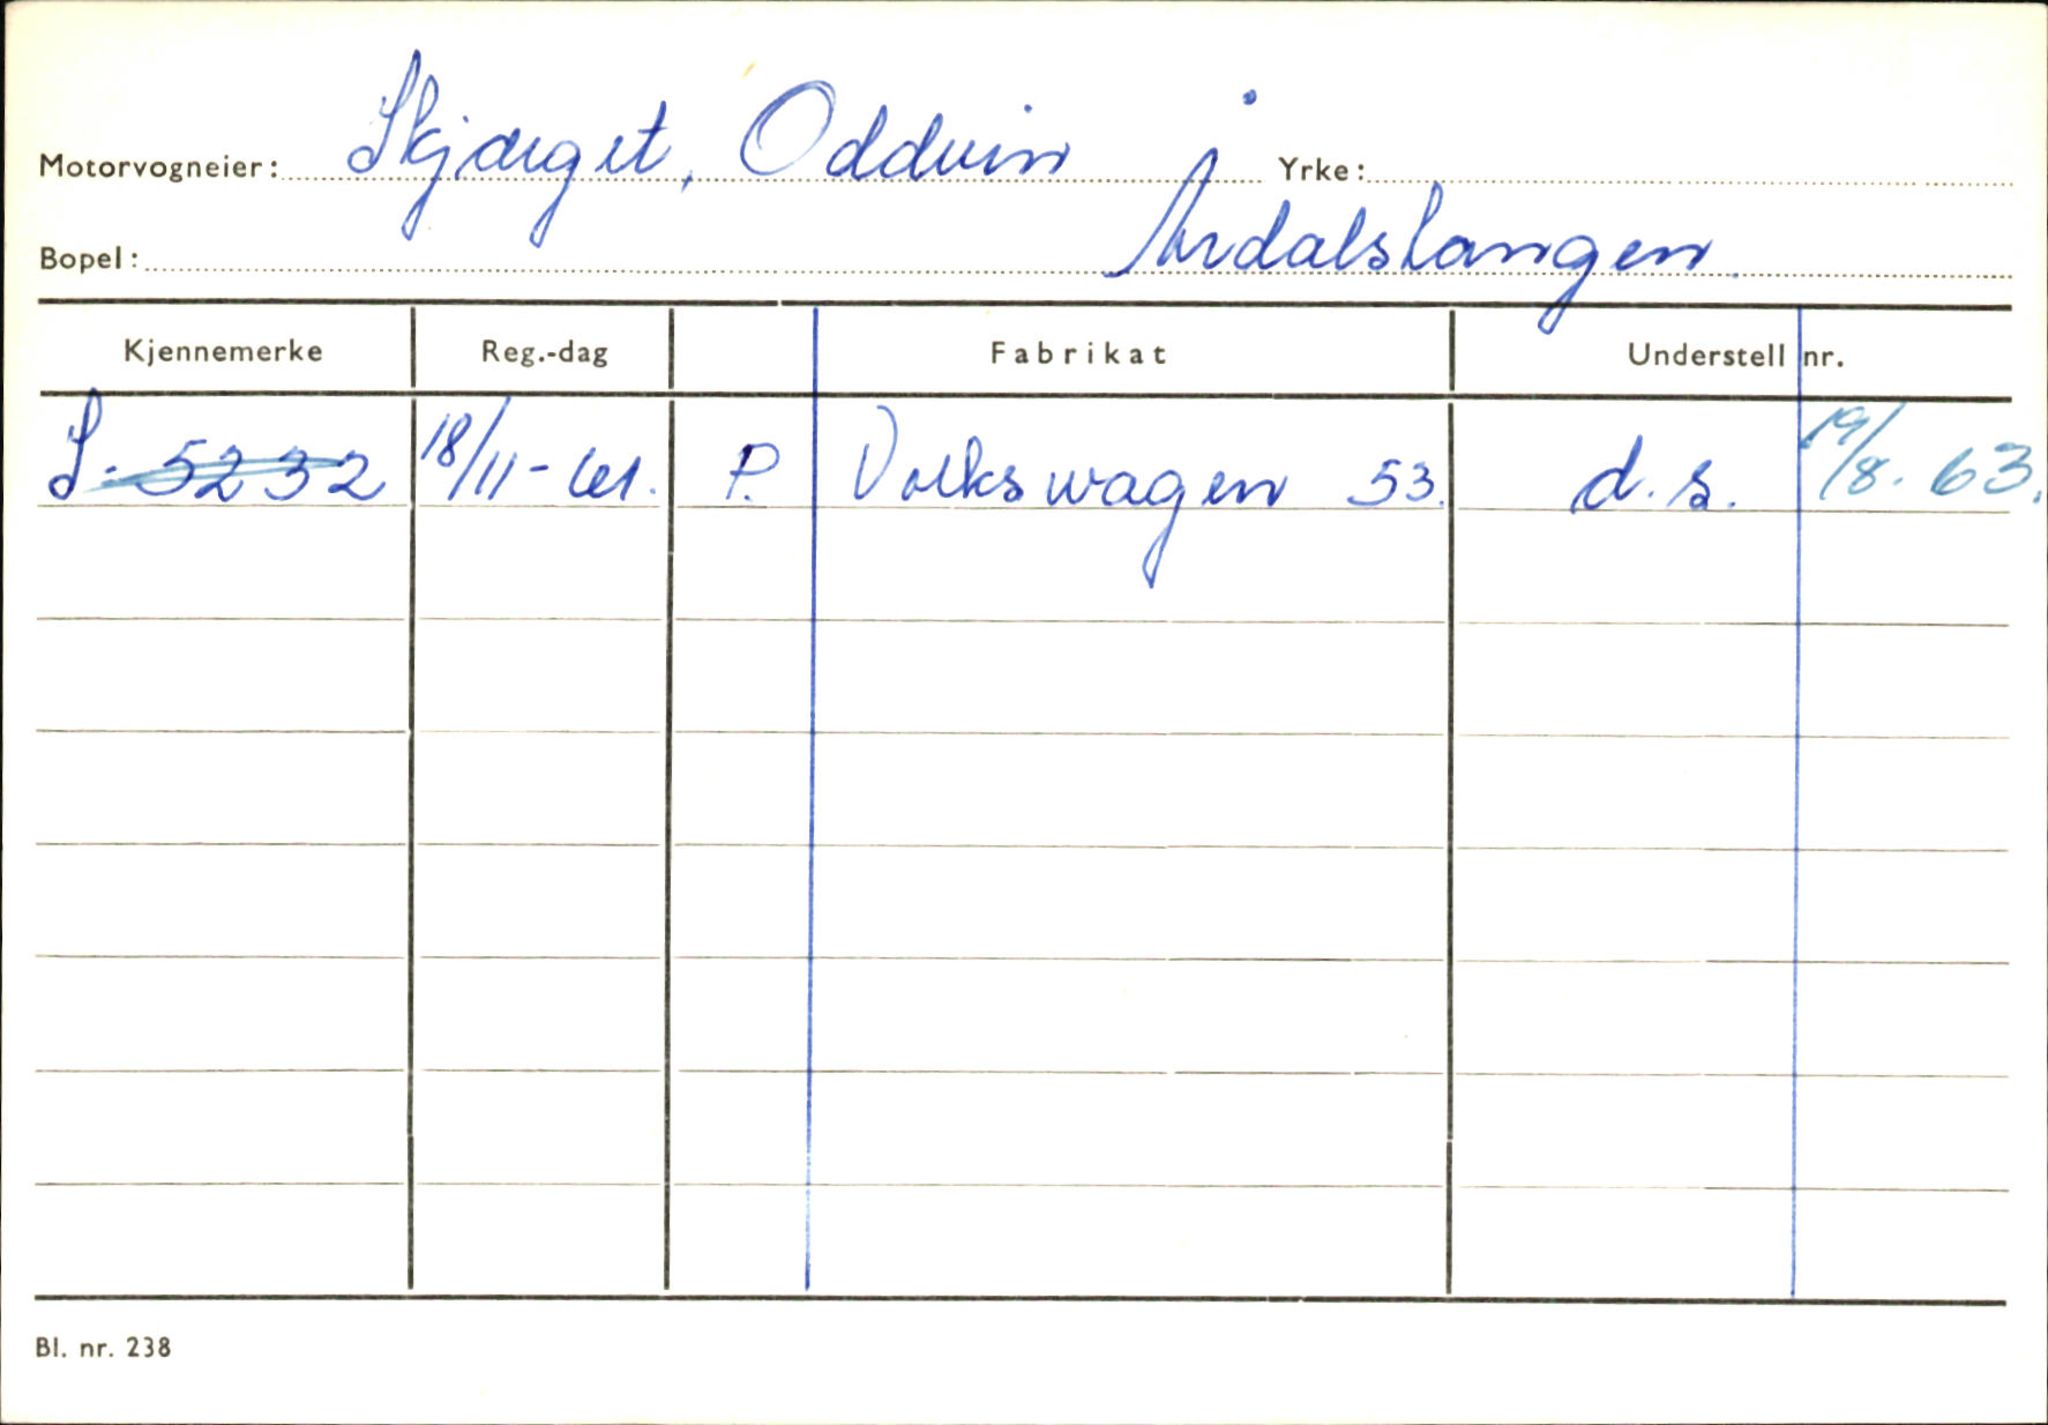 Motorvogneier: Skjærget, Oddvin Yrke:
Bopel: Årdalstangen.
Kjennemerke Reg.-dag Fabrikat Understell nr.
S-5232 18/11-61. P. Volkswagen 53. d.s. 19/8.63.
Bl. nr. 238